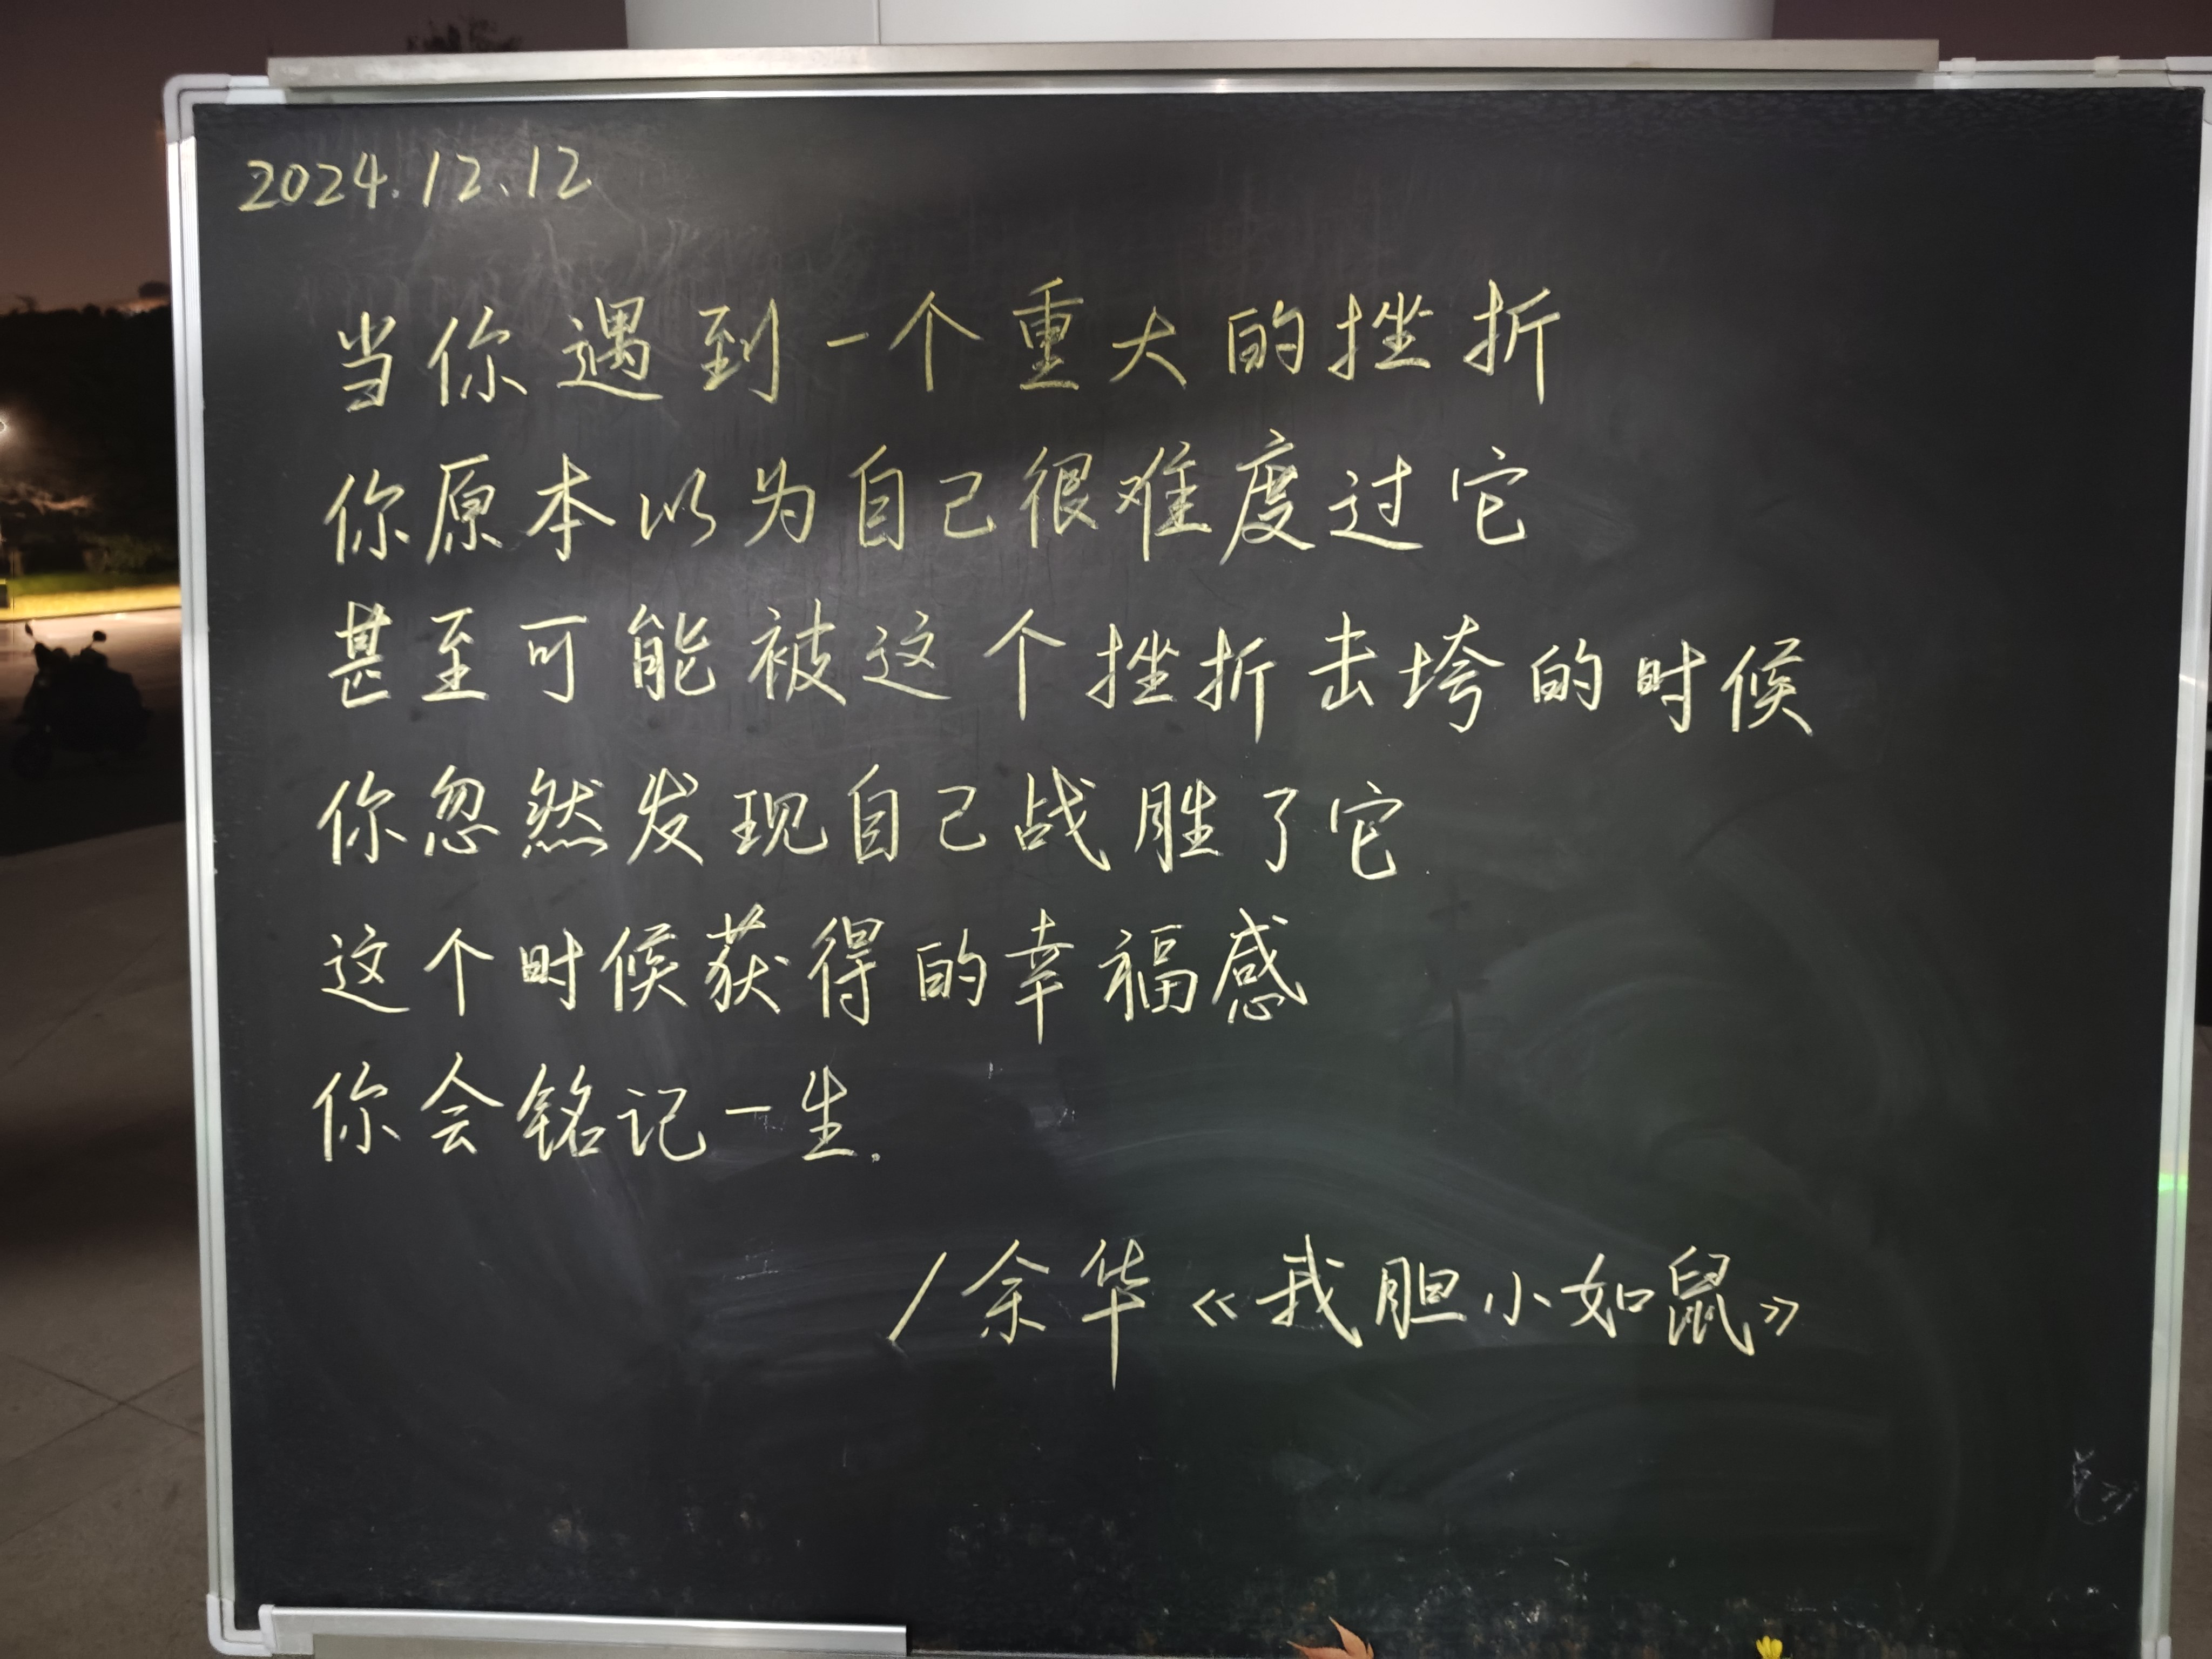 2024.12.12
当你遇到一个重大的挫折
你原本以为自己很难度过它
甚至可能被这个挫折击垮的时候
你忽然发现自己战胜了它
这个时候获得的幸福感
你会铭记一生.
/余华《我胆小如鼠》